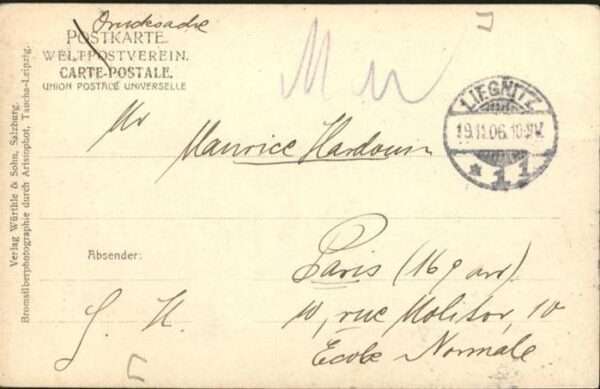 Drucksache
POSTKARTE.
WELTPOSTVEREIN.
CARTE-POSTALE.
UNION POSTALE UNIVERSELLE
LIEGNITZ
19.11.06. 10-11V.
* 1 1
Mr
Maurice Hardouin
Absender:
Paris (16e arr)
10, rue Molitor, 10
Ecole Normale
Verlag Würthle & Sohn, Salzburg.
Bromsilberphotographie durch Aristophot, Taucha-Leipzig.